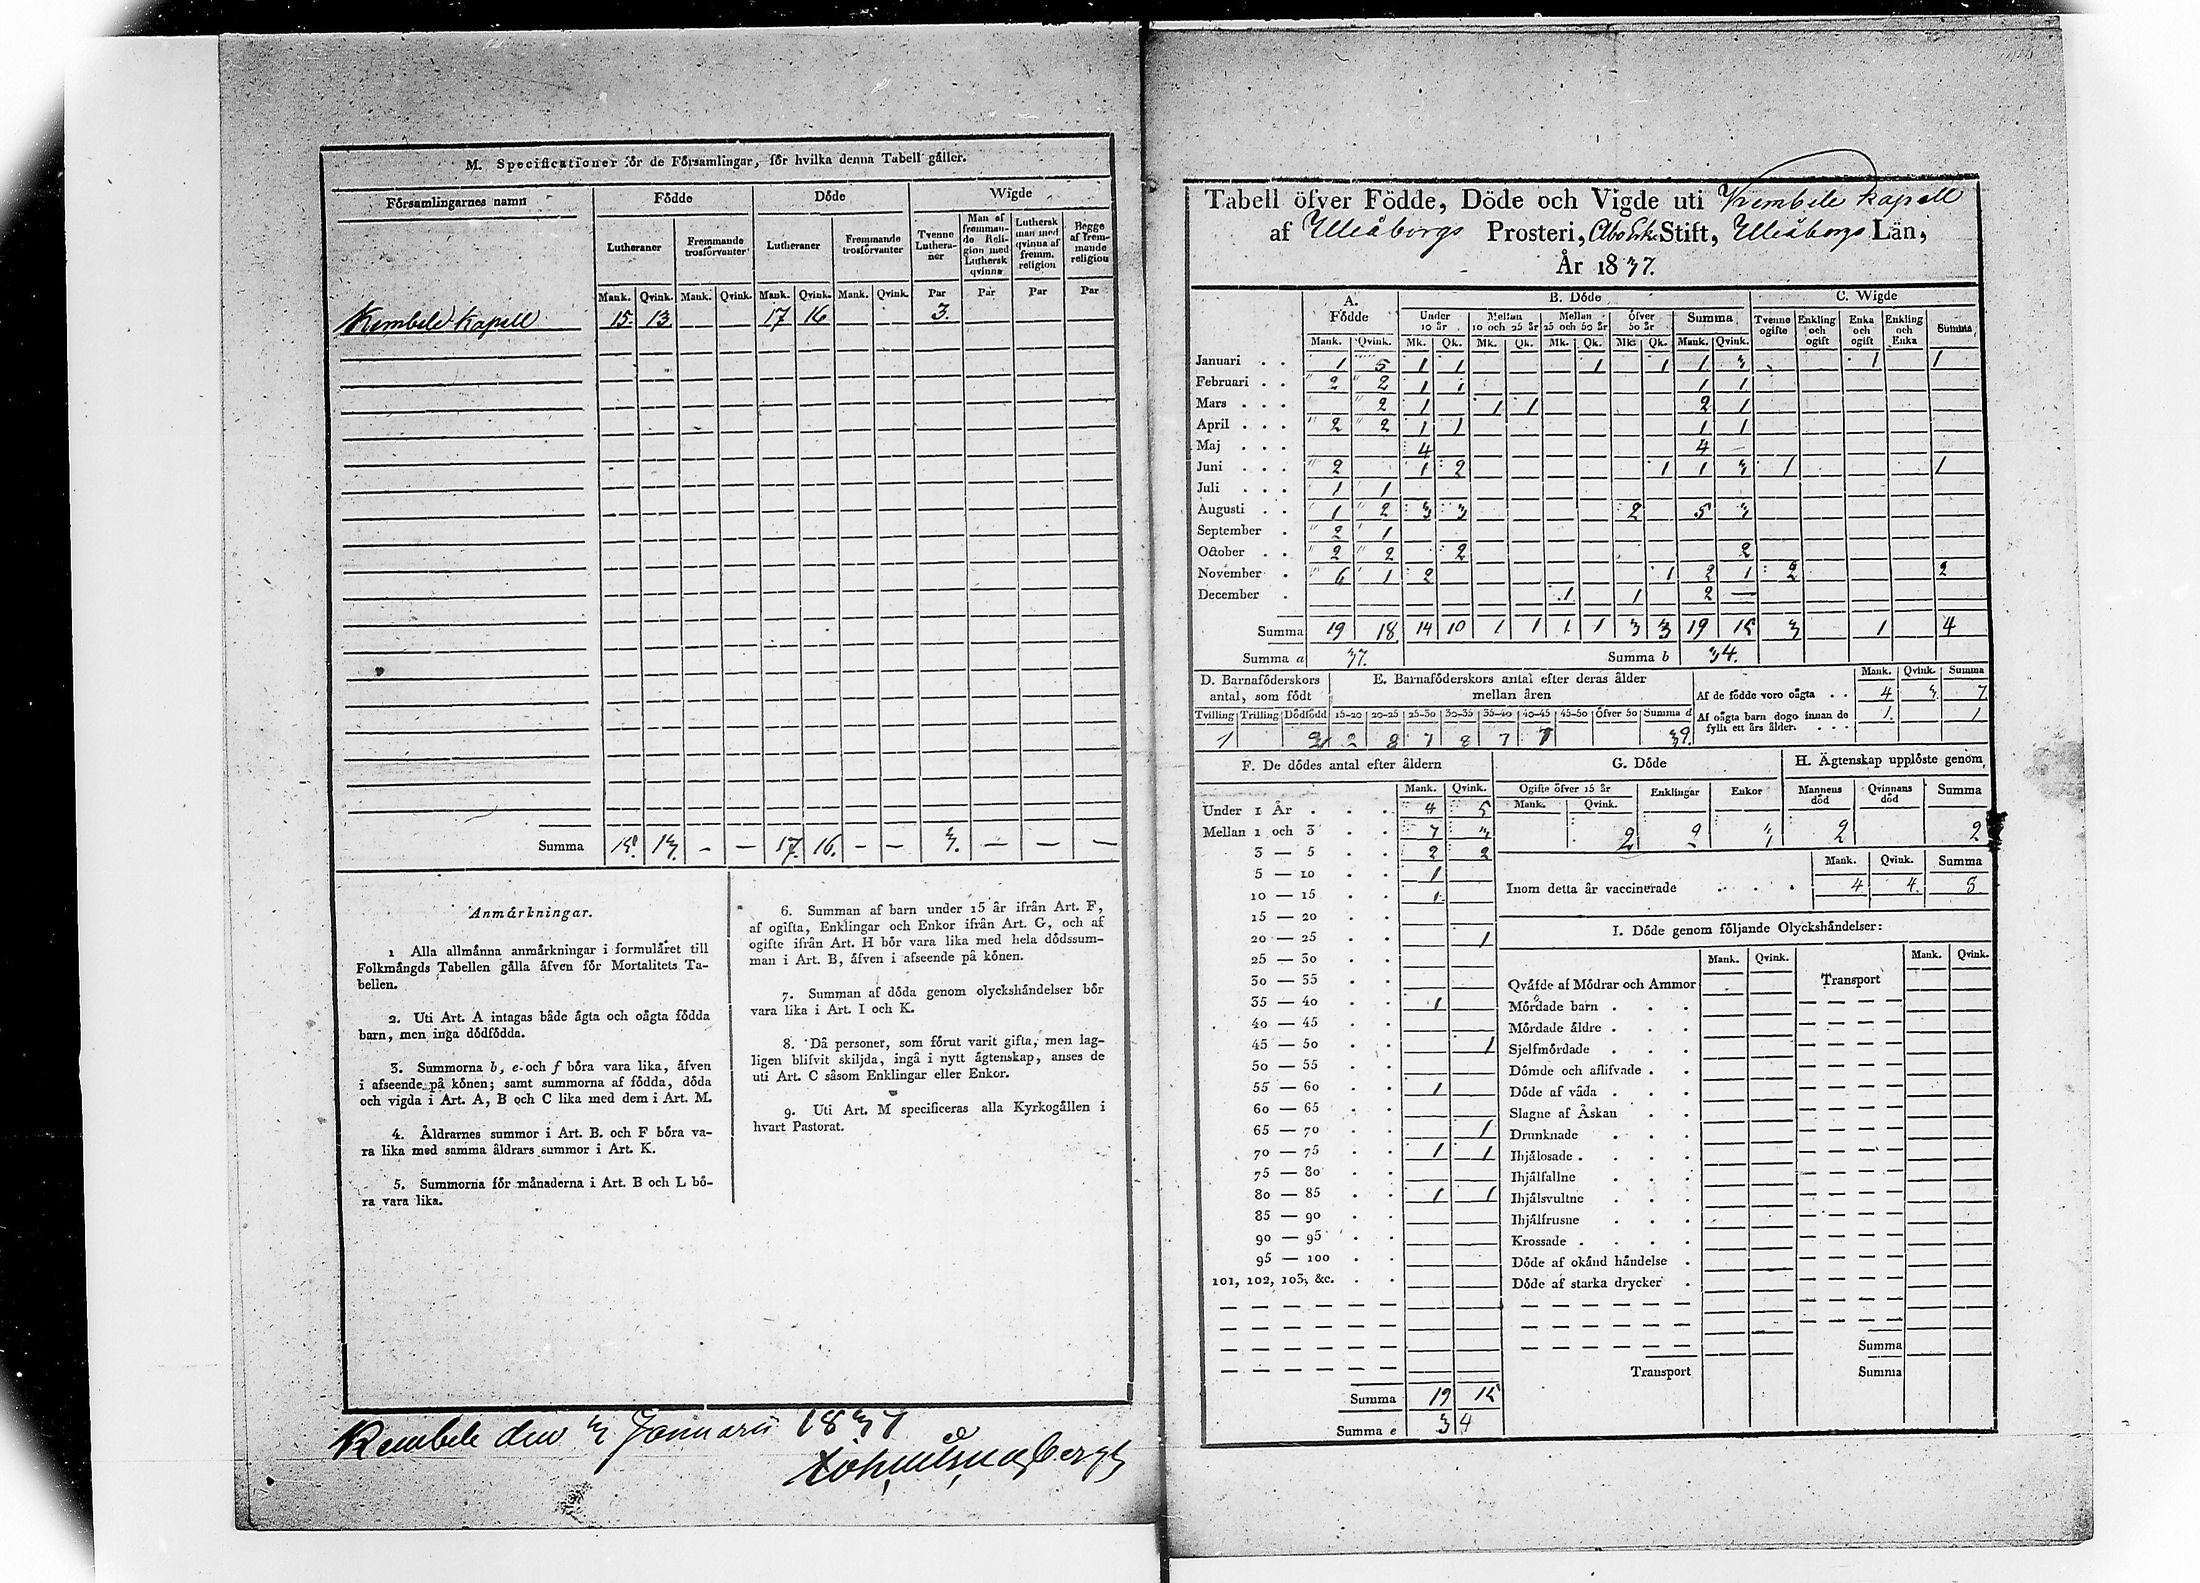 M. Specificationer för de Församlingar, för hvilka denna Tabell gäller.
Församlingarnes namn Födde Döde Wigde
Lutheraner Fremmande trosförvanter Lutheraner Fremmande trosförvanter Tvenne Lutheraner Man af fremmande Religion med Luthersk qvinna Luthersk man med qvinna af fremm. religion Begge af fremmande religion
Mank. Qvink. Mank. Qvink. Mank. Qvink. Mank. Qvink. Par Par Par Par
Kembele Kapell 15 13 17 16 3.
Summa 15. 13. — — 17. 16. — — 3. — — —
Anmärkningar.
1 Alla allmänna anmärkningar i formuläret till
Folkmängds Tabellen gälla äfven för Mortalitets Ta-
bellen.
2. Uti Art. A intagas både ägta och oägta födda
barn, men inga dödfödda.
3. Summorna b, e och f böra vara lika, äfven
i afseende på könen; samt summorna af födda, döda
och vigda i Art. A, B och C lika med dem i Art. M.
4. Åldrarnes summor i Art. B. och F böra va-
ra lika med samma åldrars summor i Art. K.
5. Summorna för månaderna i Art. B och L bö-
ra vara lika.
6. Summan af barn under 15 år ifrån Art. F,
af ogifta, Enklingar och Enkor ifrån Art. G, och af
ogifte ifrån Art. H bör vara lika med hela dödssum-
man i Art. B, äfven i afseende på könen.
7. Summan af döda genom olyckshändelser bör
vara lika i Art. I och K.
8. Då personer, som förut varit gifta, men lag-
ligen blifvit skiljda, ingå i nytt ägtenskap, anses de
uti Art. C såsom Enklingar eller Enkor.
9. Uti Art. M specificeras alla Kyrkogällen i
hvart Pastorat.
Kembele den 3 Januarii 1837
Tabell öfver Födde, Döde och Vigde uti Kembele Kapell
af Uleåborgs Prosteri, Åbo Erke Stift, Uleåborgs Län,
År 1837.
A. Födde B. Döde C. Wigde
Under 10 år Mellan 10 och 25 år Mellan 25 och 50 år Öfver 50 år Summa Tvenne ogifte Enkling och ogift Enka och ogift Enkling och Enka Summa
Mank. Qvink. Mk. Qk. Mk. Qk. Mk. Qk. Mk. Qk. Mank. Qvink.
Januari 1 5 1 1 1 1 1 3 1 1
Februari 2 2 1 1 1 1
Mars 2 1 1 1 2 1
April 2 2 1 1 1 1
Maj 4 4 —
Juni 2 1 2 1 1 3 1 1
Juli 1 1
Augusti 1 2 3 3 2 5 3
September 2 1
October 2 2 2 2
November 6 1 2 1 2 1 2 2
December 1 1 2 —
Summa 19 18 14 10 1 1 1 1 3 3 19 15 3 1 4
Summa a 37. Summa b 34.
D. Barnaföderskors antal, som födt E. Barnaföderskors antal efter deras ålder mellan åren Mank. Qvink. Summa
Af de födde voro oägta 4 3. 7
Tvilling Trilling Dödfödd 15-20 20-25 25-30 30-35 35-40 40-45 45-50 Öfver 50 Summa d
Af oägta barn dogo innan de fyllt ett års ålder. 1. 1
1 2 8 7 8 7 7 39.
F. De dödes antal efter åldern G. Döde H. Ägtenskap upplöste genom
Mank. Qvink. Ogifte öfver 15 år Mank. Qvink. Enklingar Enkor Mannens död Qvinnans död Summa
Under 1 År 4 5
Mellan 1 och 3 7 3 2 2 3 2 2
3 — 5 2 2 Mank. Qvink. Summa
5 — 10 1 Inom detta år vaccinerade 4 4. 8
10 — 15 1
15 — 20
20 — 25 1
25 — 30
30 — 35
35 — 40 1
40 — 45
45 — 50 1
50 — 55
55 — 60 1
60 — 65
65 — 70 1
70 — 75 1 1
75 — 80
80 — 85 1 1
85 — 90
90 — 95
95 — 100
101, 102, 103, &c.
Summa 19 15
Summa e 34
I. Döde genom följande Olyckshändelser:
Mank. Qvink. Mank. Qvink.
Qväfde af Mödrar och Ammor Transport
Mördade barn
Mördade äldre
Sjelfmördade
Dömde och aflifvade
Döde af våda
Slagne af Åskan
Drunknade
Ihjälosade
Ihjälfallne
Ihjälsvultne
Ihjälfrusne
Krossade
Döde af okänd händelse
Döde af starka drycker
Summa
Transport Summa